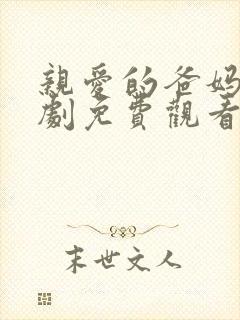 親愛的爸媽
劇免費觀看
末世文人